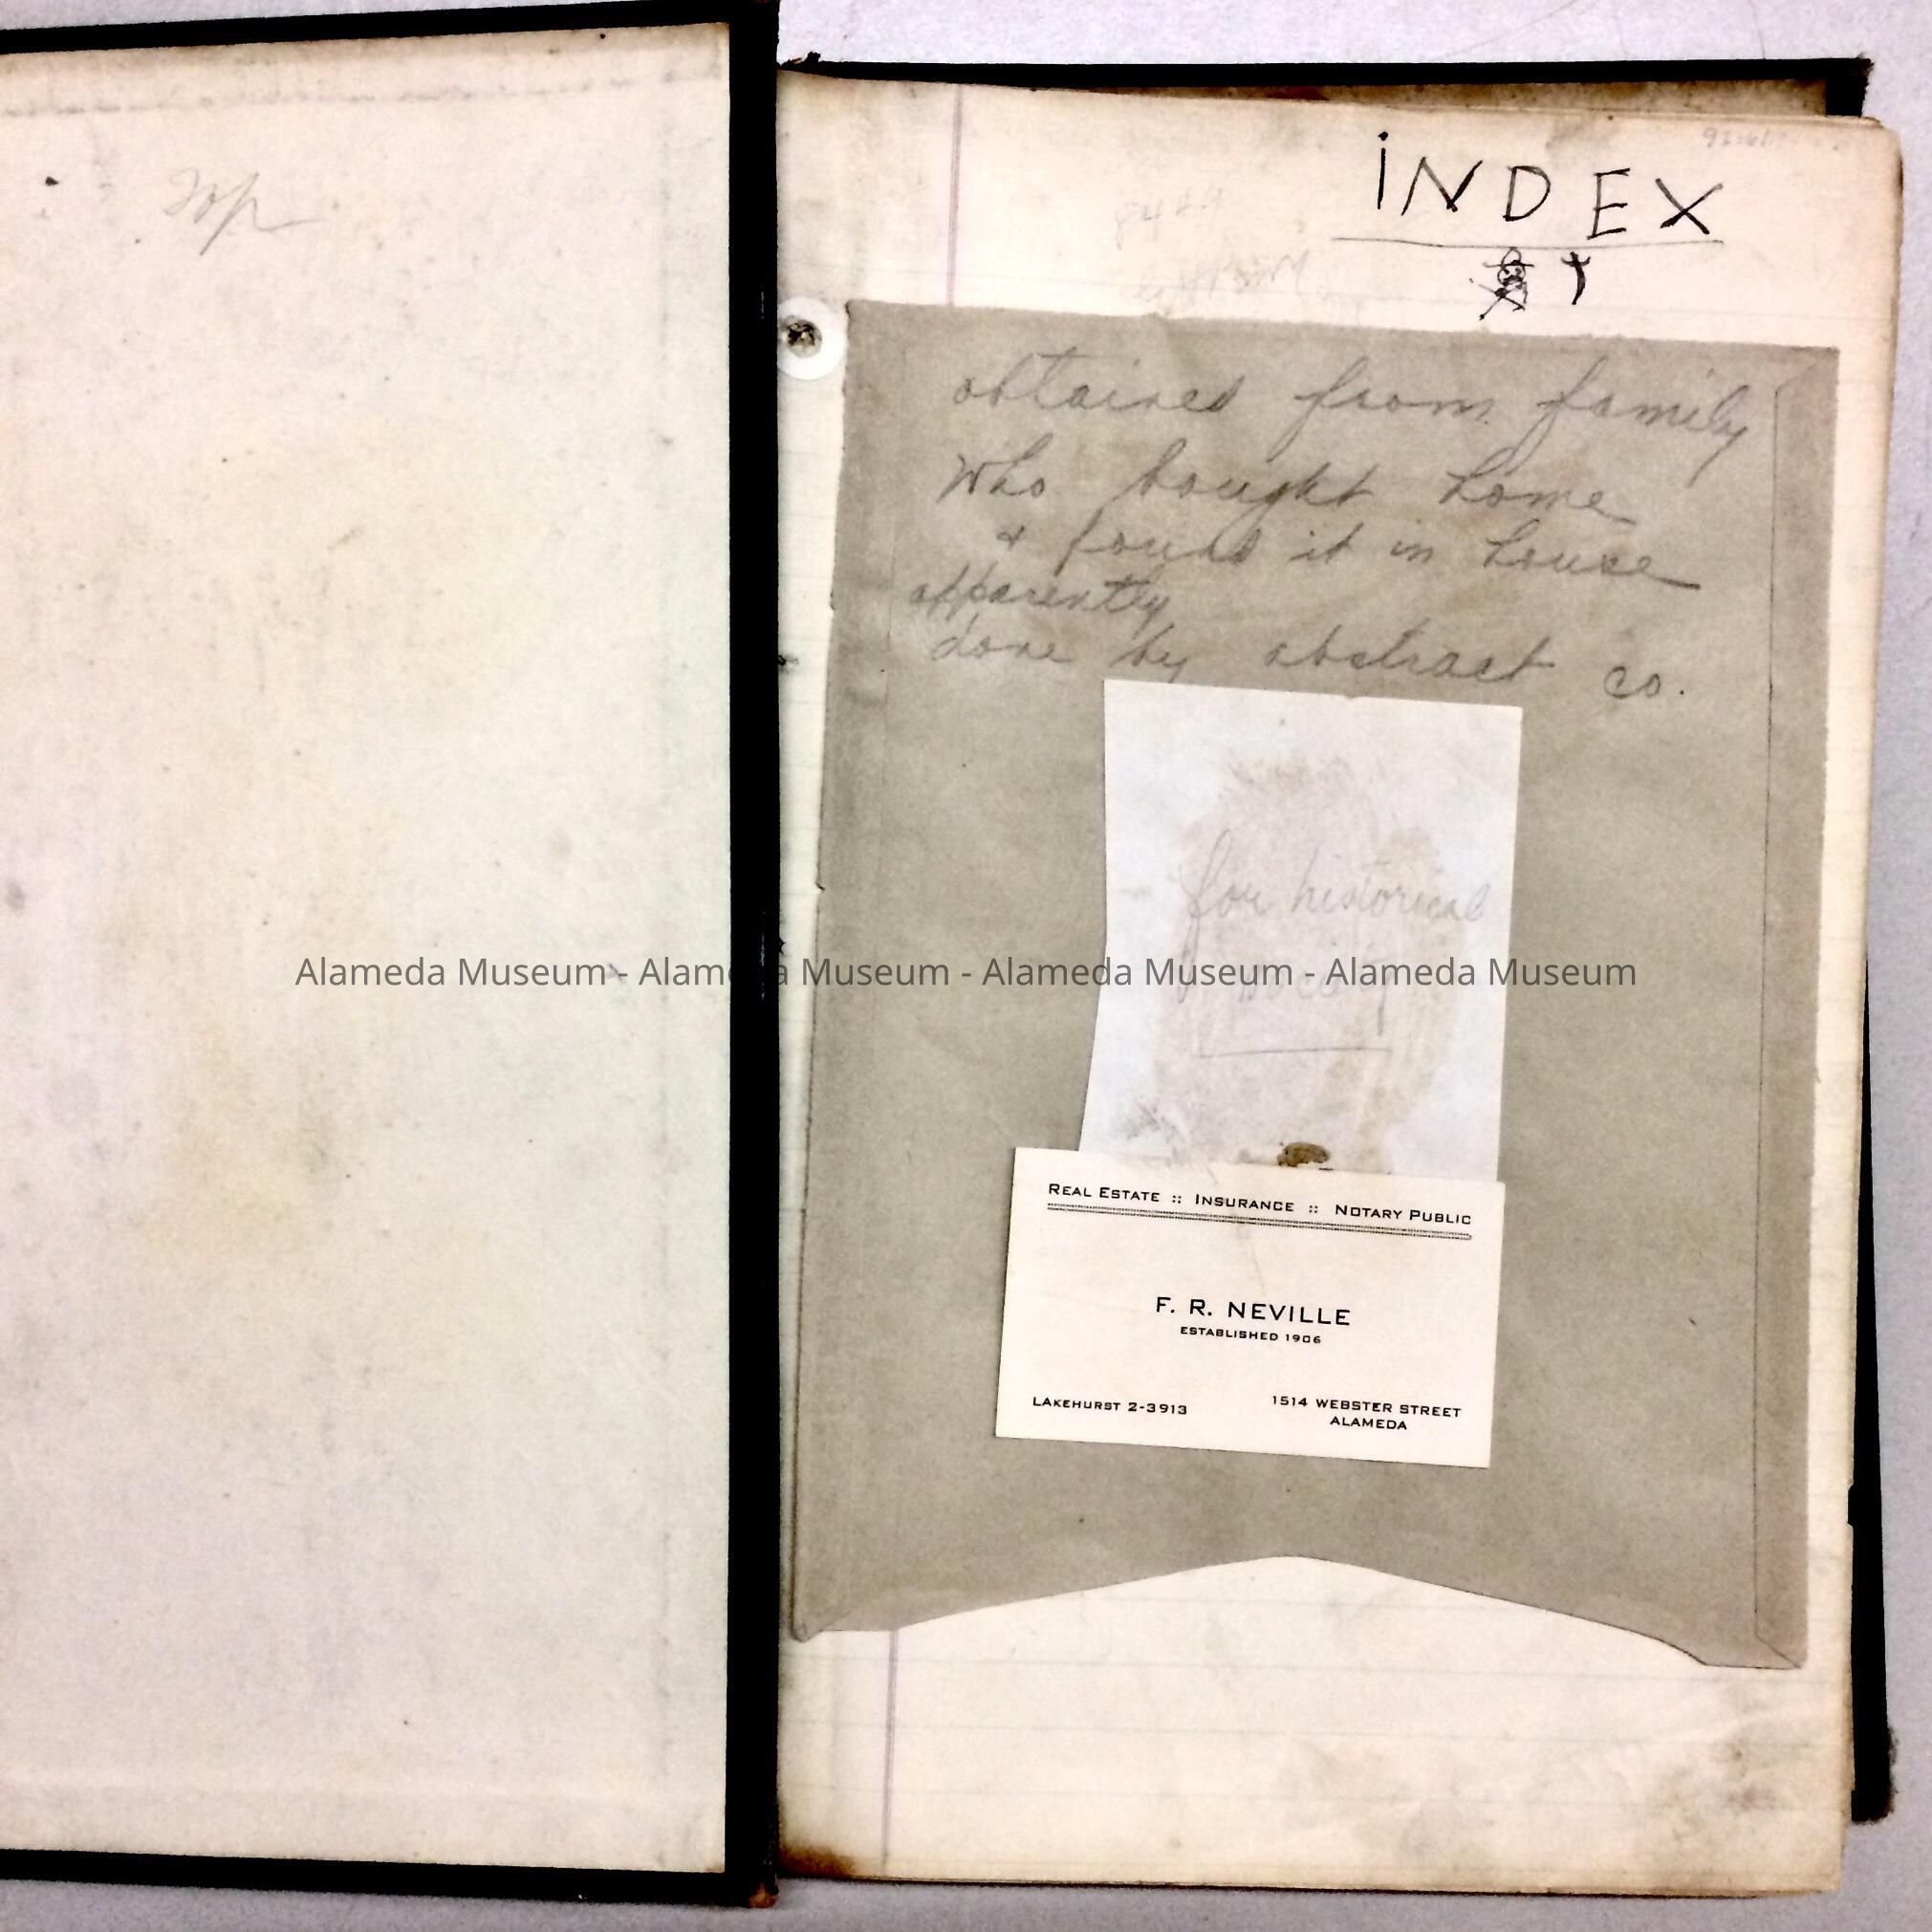 Top
INDEX
obtained from family
who bought home
+ found it in house
apparently
done by abstract co.
for historical
Society
Alameda Museum - Alameda Museum - Alameda Museum - Alameda Museum
REAL ESTATE :: INSURANCE :: NOTARY PUBLIC
F. R. NEVILLE
ESTABLISHED 1906
LAKEHURST 2-3913
1514 WEBSTER STREET
ALAMEDA